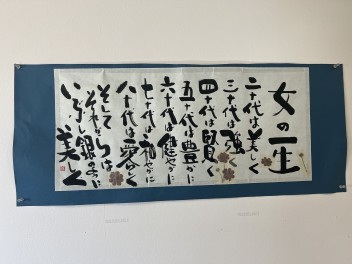 女の一生
二十代は美しく
三十代は強く
四十代は賢く
五十代は豊かに
六十代は健やかに
七十代は和やかに
八十代は愛らしく
そして
それからは
いぶし銀のように
美しく